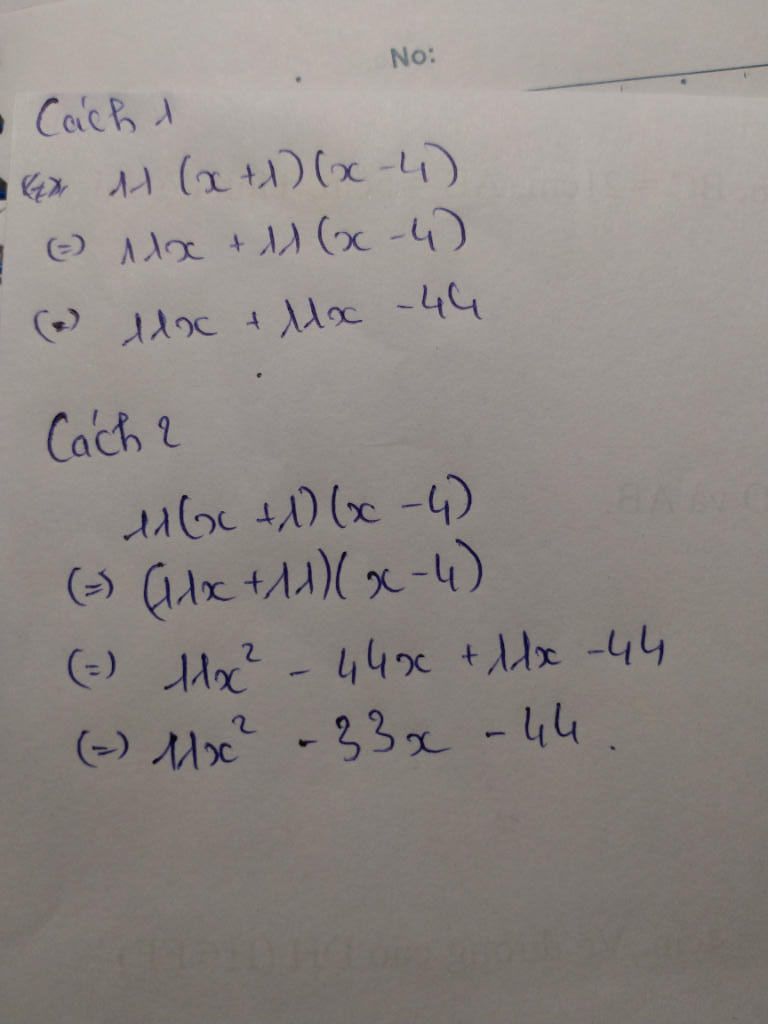 No:
Cách 1
11 (x+1)(x-4)
(=) 11x + 11(x-4)
(=) 11x + 11x -44
Cách 2
11(x+1)(x-4)
(=) (11x+11)(x-4)
(=) 11x² - 44x +11x -44
(=) 11x² -33x -44.